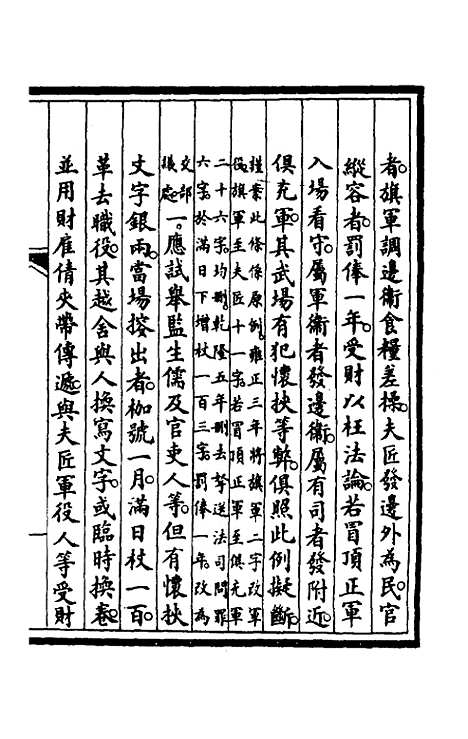 者。旗軍調邊衛食糧差操。夫匠發邊外為民。官
縱容者。罰俸一年。受財以枉法論。若冒頂正軍
入場看守。屬軍衛者發邊衛。屬有司者發附近。
俱充軍。其武場有犯懷挾等弊。俱照此例擬斷。
謹案此條係原例。雍正三年將旗軍二字改軍
役。旗軍至夫匠十一字。若冒頂正軍至俱充軍
二十六字。均刪。乾隆五年刪去拏送法司問罪
六字。於滿日下增杖一百三字。罰俸一年。改為
交部
議處
一。應試舉監生儒及官吏人等。但有懷挾
文字銀兩。當場搜出者。枷號一月。滿日杖一百。
革去職役。其越舍與人換寫文字。或臨時換卷。
並用財雇倩夾帶傳遞。與夫匠軍役人等受財